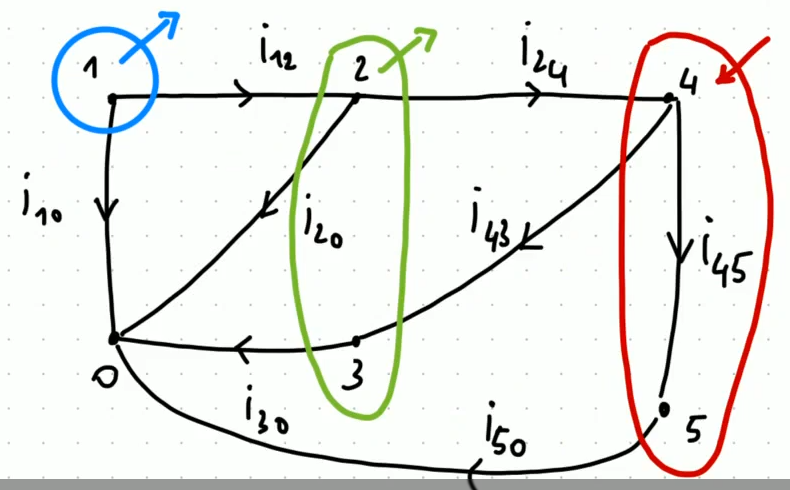 1
i12
2
i24
4
i10
i20
i43
i45
0
3
i30
i50
5